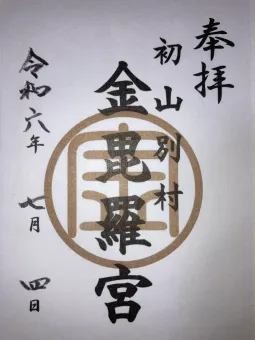 奉拝
初山別村
金毘羅宮
令和六年
七月
四日